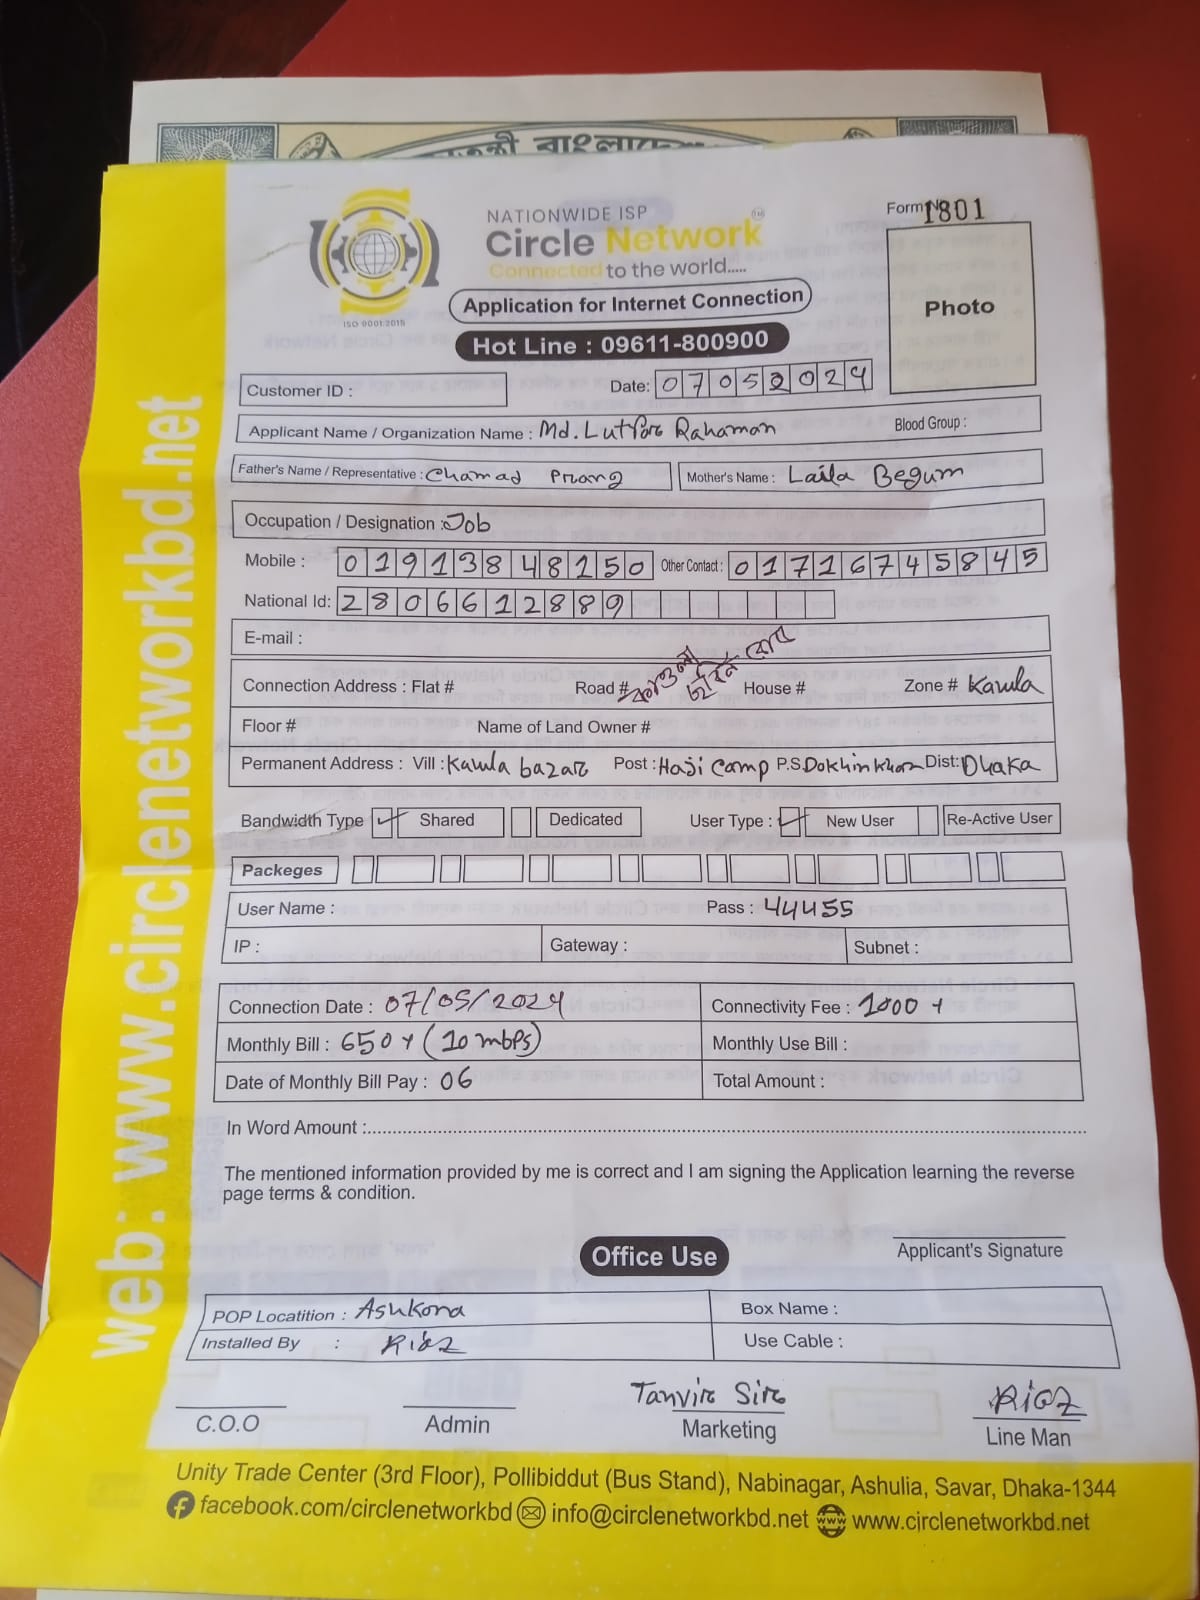 তন্ত্রী বাংলাদেশ
NATIONWIDE ISP
Circle Network
Connected to the world.....
ISO 9001:2015
Form No 1801
Photo
Application for Internet Connection
Hot Line : 09611-800900
Customer ID :
Date: 07052024
Applicant Name / Organization Name : Md. Lutfor Rahaman Blood Group :
Father's Name / Representative : Chamad Prang Mother's Name : Laila Begum
Occupation / Designation : Job
Mobile : 01913848150 Other Contact : 01716745845
National Id: 2806612889
E-mail :
Connection Address : Flat # Road # কাওলা House # Zone # Kawla
Floor # Name of Land Owner #
Permanent Address : Vill : Kawla bazar Post : Haji Camp P.S. Dokhinkhan Dist: Dhaka
Bandwidth Type ✓ Shared Dedicated User Type : ✓ New User Re-Active User
Packeges
User Name : Pass : 44455
IP : Gateway : Subnet :
Connection Date : 07/05/2024 Connectivity Fee : 1000
Monthly Bill : 650 (10 mbps) Monthly Use Bill :
Date of Monthly Bill Pay : 06 Total Amount :
In Word Amount :
The mentioned information provided by me is correct and I am signing the Application learning the reverse
page terms & condition.
Applicant's Signature
Office Use
POP Locatition : Ashkona Box Name :
Installed By : Riaz Use Cable :
Tanvir Sir Riaz
C.O.O Admin Marketing Line Man
Unity Trade Center (3rd Floor), Pollibiddut (Bus Stand), Nabinagar, Ashulia, Savar, Dhaka-1344
facebook.com/circlenetworkbd info@circlenetworkbd.net www.circlenetworkbd.net
web: www.circlenetworkbd.net